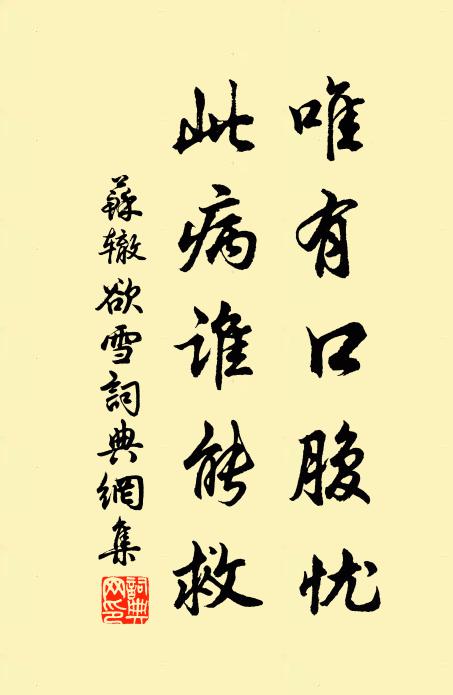 唯有口腹忧
此病谁能救
蘇辙欲雪詞典網集
詞典網印